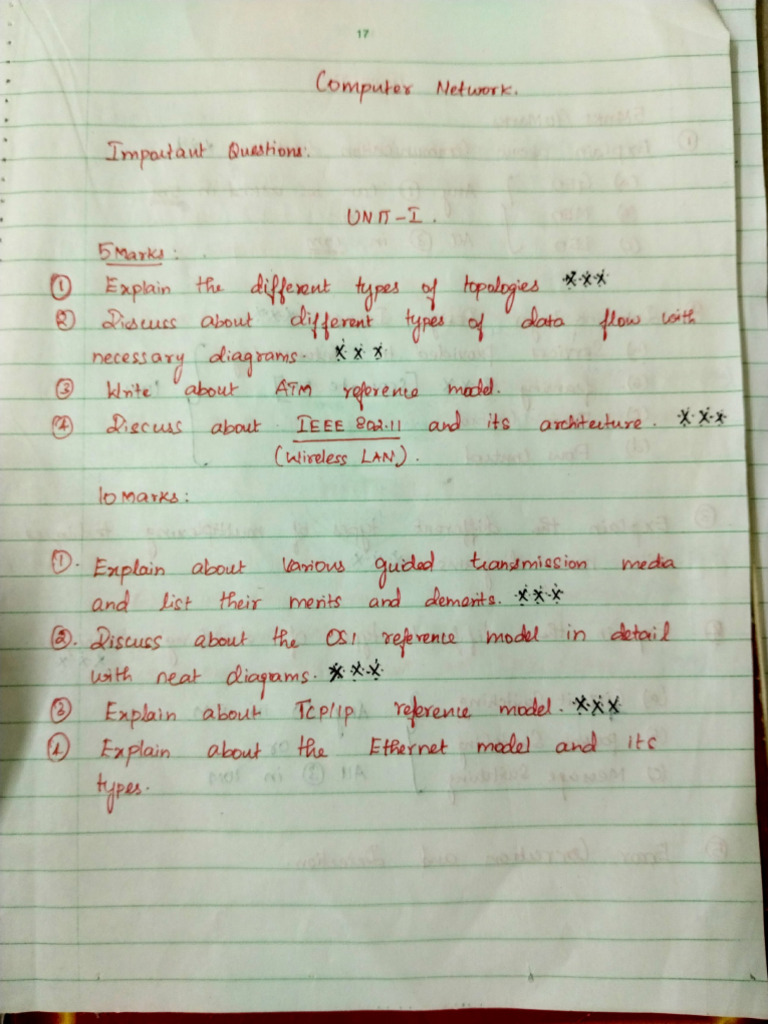 17
Computer Network.
Important Questions:
UNIT-I.
5 Marks:
① Explain the different types of topologies ***
② Discuss about different types of data flow with
necessary diagrams. ***
③ Write about ATM reference model.
④ Discuss about IEEE 802.11 and its architecture. ***
(Wireless LAN).
10 Marks:
①. Explain about various guided transmission media
and list their merits and demerits. ***
②. Discuss about the OSI reference model in detail
with neat diagrams. ***
③ Explain about TCP/IP reference model. ***
④ Explain about the Ethernet model and its
types.